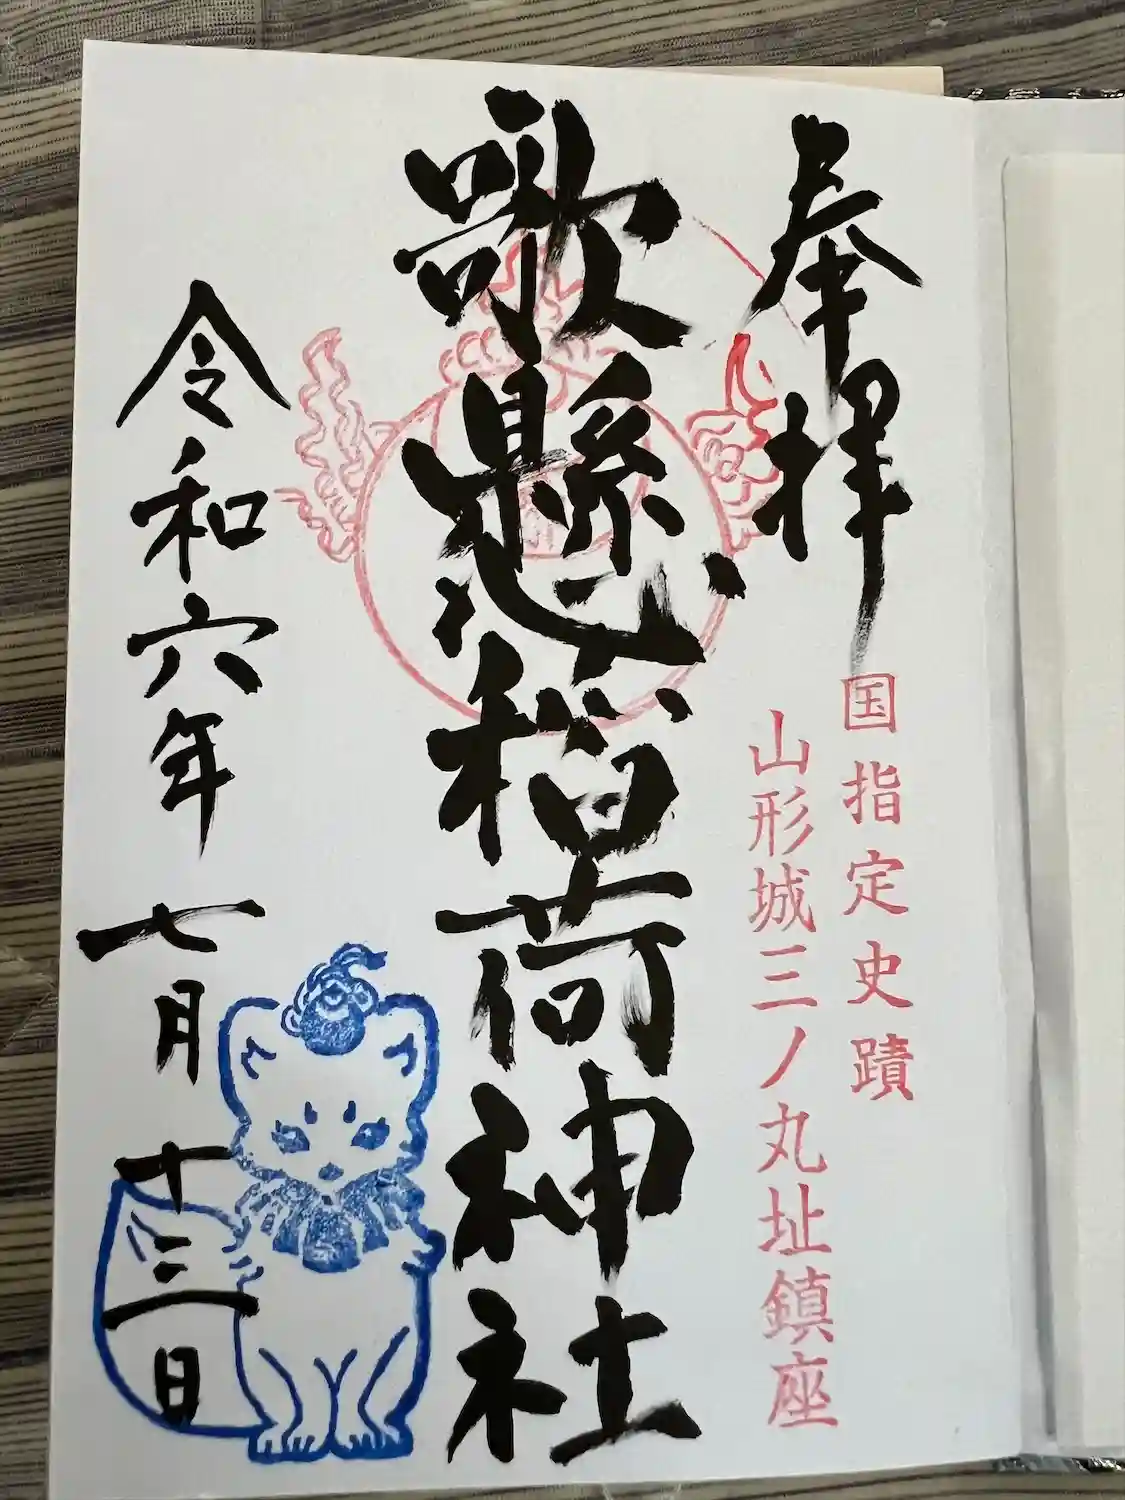 奉拝
国指定史蹟
山形城三ノ丸址鎮座
歌懸稲荷神社
令和六年七月十三日